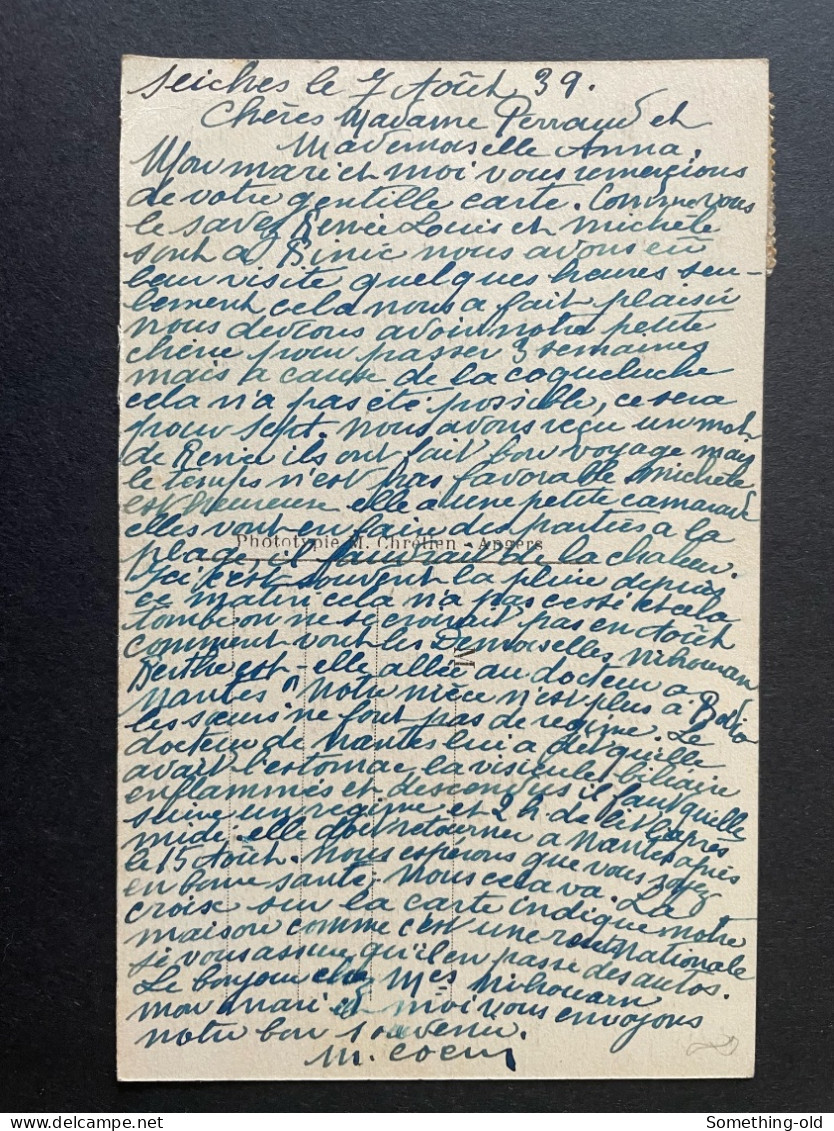 Seiches le 7 Août 39.
Chères Madame Perraud et
Mademoiselle Anna.
Mon mari et moi vous remercions
de votre gentille carte. Comme vous
le savez Renée Louis et Michèle
sont à Binic nous avons eu
leur visite quelques heures seu-
lement cela nous a fait plaisir
nous devions avoir notre petite
chérie pour passer 3 semaines
mais a cause de la coqueluche
cela n'a pas été possible, ce sera
pour sept. nous avons reçu un mot
de Renée ils ont fait bon voyage mais
le temps n'est pas favorable Michèle
est heureuse elle a une petite camarade
elles vont en faire des parties a la
plage, il faudrait de la chaleur.
Phototypie M. Chrétien - Angers
Ici c'est souvent la pluie depuis
ce matin cela n'a pas cessé et cela
tombe on ne se croirait pas en Août
comment vont les Demoiselles Nihouarn
Berthe est-elle allée au docteur a
Nantes notre nièce n'est plus à
les sœurs ne font pas de régime. Le
docteur de Nantes lui a dit qu'elle
avait l'estomac la visicule biliaire
enflammés et descendus il faut qu'elle
suive un régime et 2 h de lit l'après
midi. elle doit retourner a Nantes après
le 15 Août. Nous espérons que vous soyez
en bonne santé. Nous cela va. La
croix sur la carte indique notre
maison comme c'est une route nationale
je vous assure qu'il en passe des autos.
Le bonjour chez Mes Nihouarn
mon mari et moi vous envoyons
notre bon souvenir.
M. Coeur
Something-old